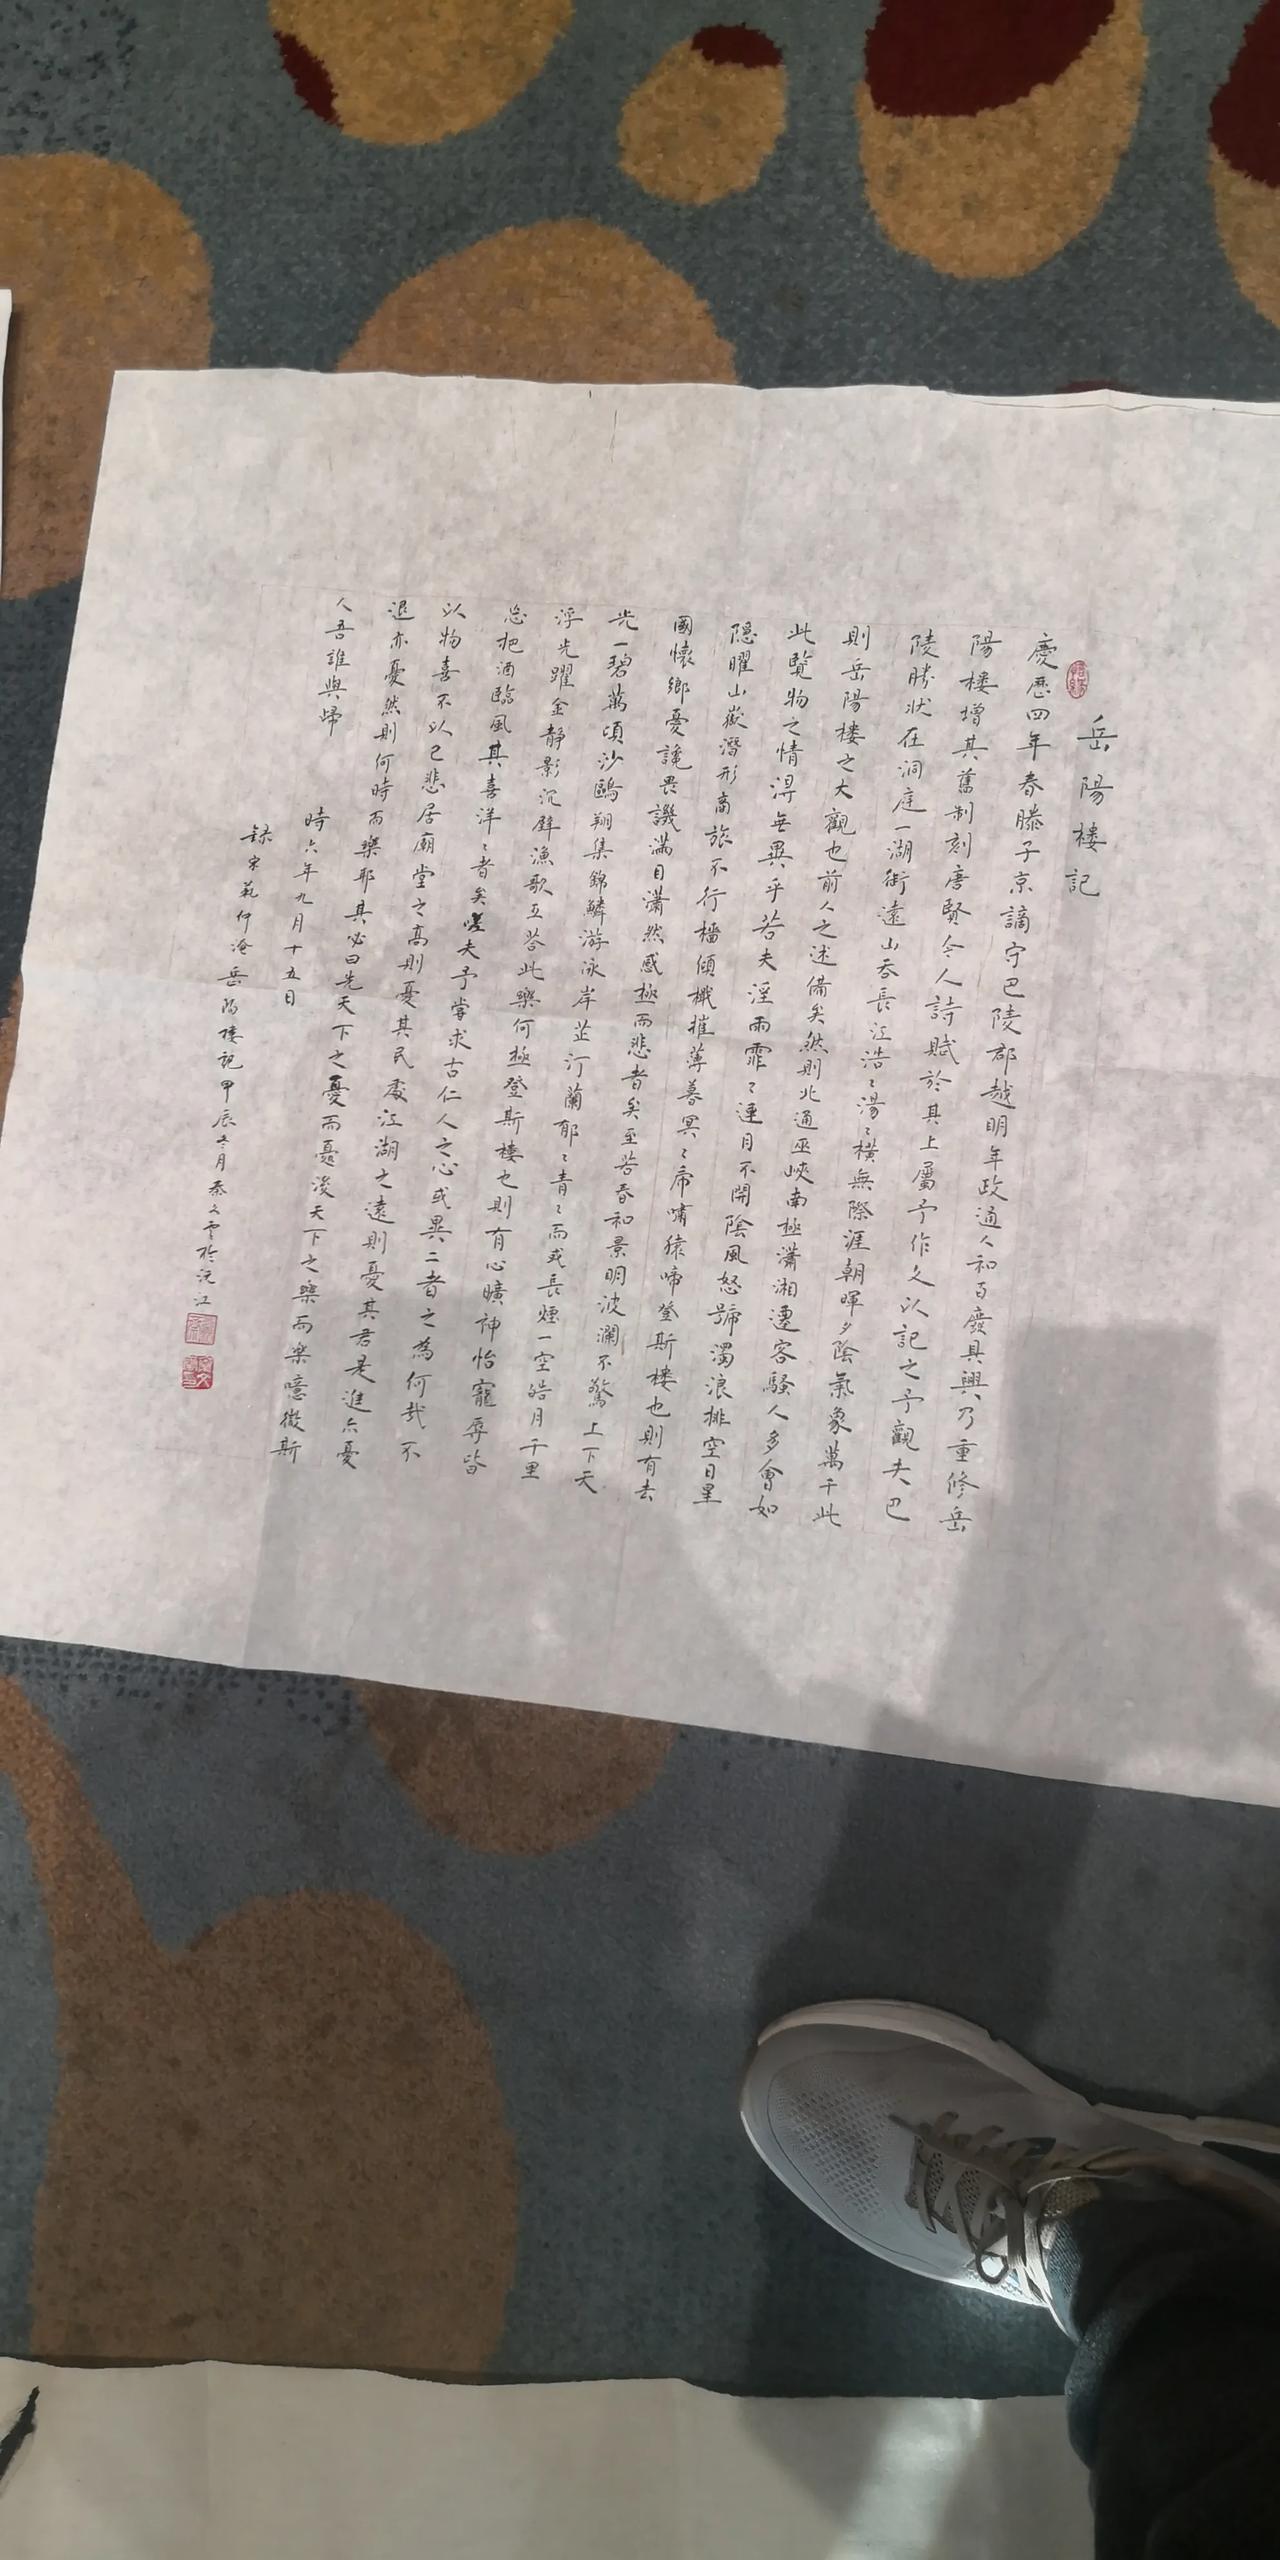 岳陽樓記
慶歷四年春滕子京謫守巴陵郡越明年政通人和百廢具興乃重修岳
陽樓增其舊制刻唐賢今人詩賦於其上屬予作文以記之予觀夫巴
陵勝狀在洞庭一湖銜遠山吞長江浩〻湯〻橫無際涯朝暉夕陰氣象萬千此
則岳陽樓之大觀也前人之述備矣然則北通巫峽南極瀟湘遷客騷人多會如
此覽物之情得無異乎若夫淫雨霏〻連月不開陰風怒號濁浪排空日星
隱曜山嶽潛形商旅不行檣傾檝摧薄暮冥〻虎嘯猿啼登斯樓也則有去
國懷鄉憂讒畏譏滿目瀟然感極而悲者矣至若春和景明波瀾不驚上下天
光一碧萬頃沙鷗翔集錦鱗游泳岸芷汀蘭郁〻青〻而或長煙一空皓月千里
浮光躍金靜影沉璧漁歌互答此樂何極登斯樓也則有心曠神怡寵辱皆
忘把酒臨風其喜洋〻者矣嗟夫予嘗求古仁人之心或異二者之為何哉不
以物喜不以己悲居廟堂之高則憂其民處江湖之遠則憂其君是進亦憂
退亦憂然則何時而樂耶其必曰先天下之憂而憂後天下之樂而樂噫微斯
人吾誰與歸
時六年九月十五日
錄宋范仲淹岳陽樓記甲辰冬月秦文雲於沅江